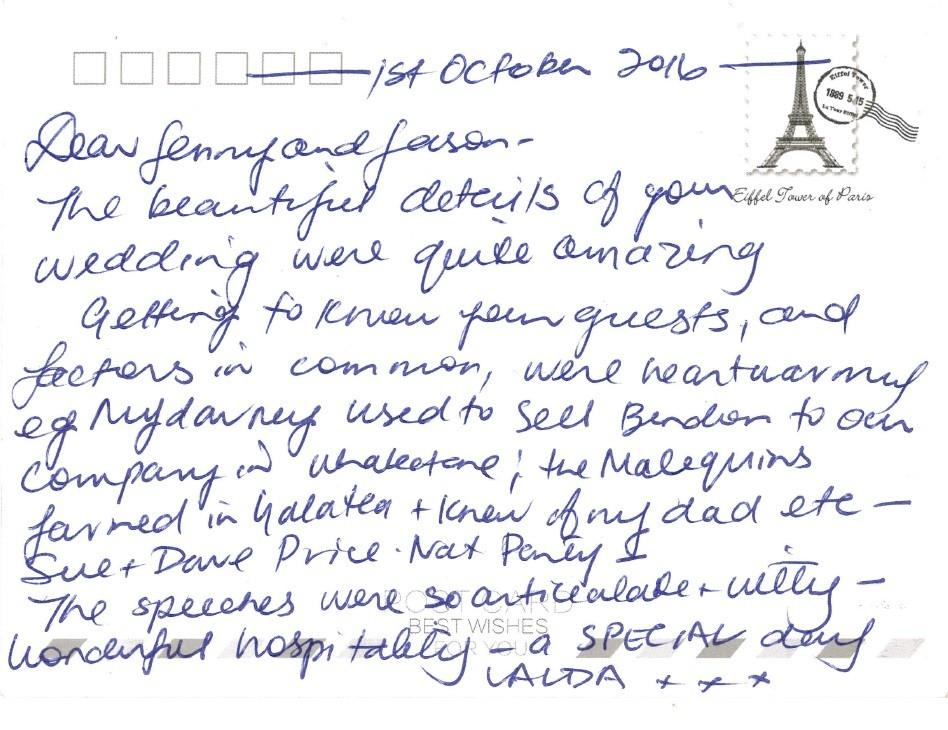 1st October 2016
Eiffel Tower
1889 5.15
Dear Jenny and Jason -
Eiffel Tower of Paris
The beautiful details of your
wedding were quite amazing
Getting to know your guests, and
factors in common, were heartwarming
eg used to sell Bendon to our
company in Whakatane; the Malequins
farmed in Galatea + knew of my dad etc -
Sue + Dave Price. Nat Party
The speeches were so articulate + witty -
POSTCARD
BEST WISHES
FOR YOU
Wonderful hospitality - a SPECIAL day
VALDA x x x